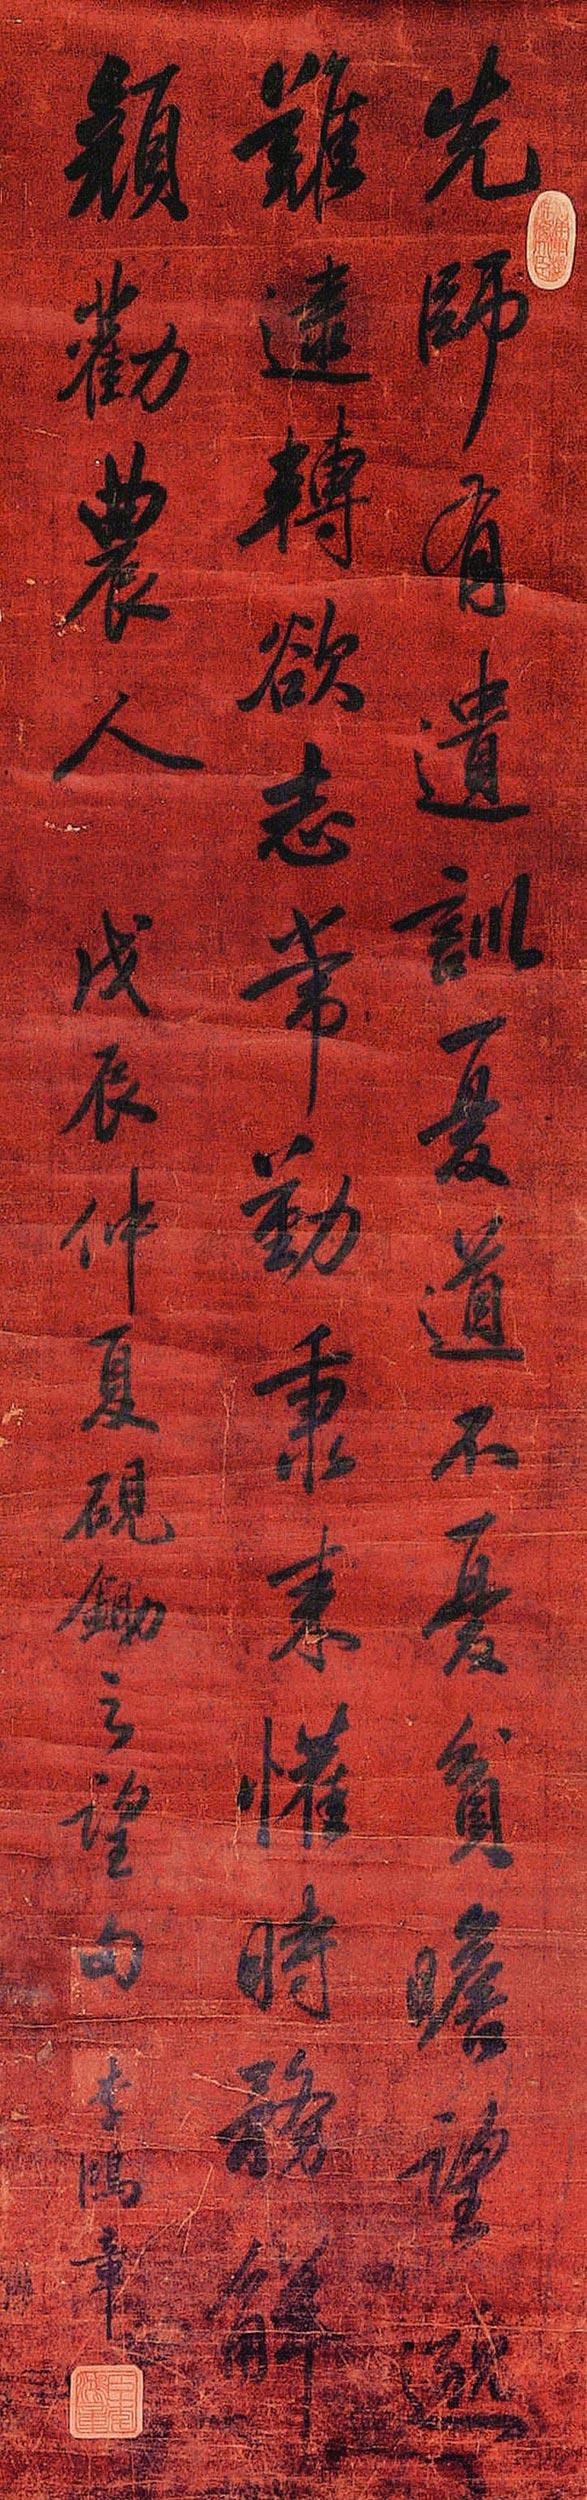 先師有遺訓憂道不憂貧瞻望邈
難逮轉欲志常勤秉耒懽時務解
顏勸農人 戊辰仲夏硯鋤之望句 李鴻章